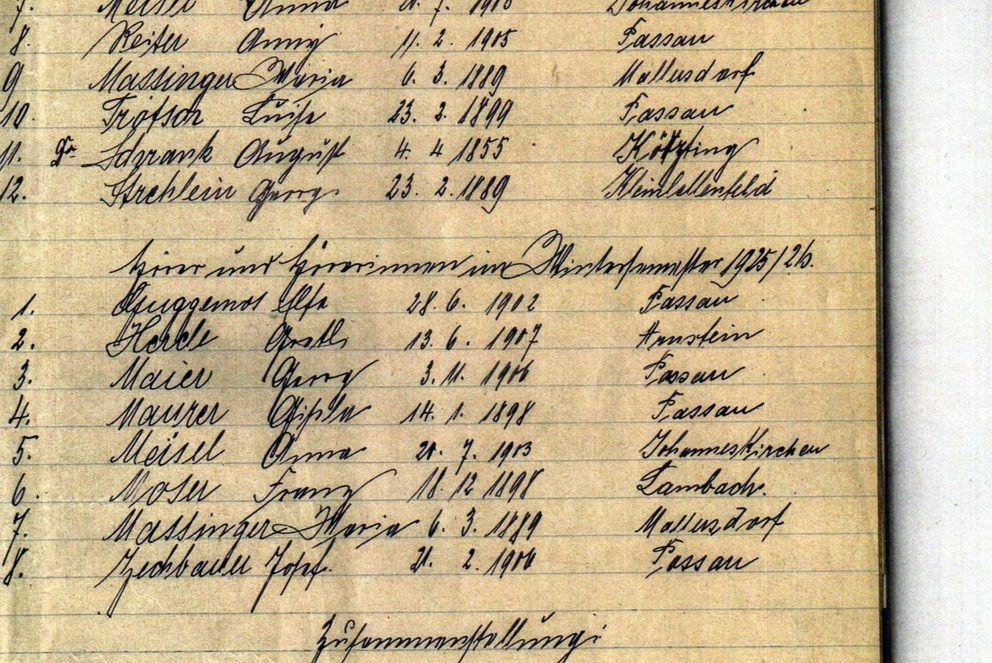 7. Meisel Anna 20. 7. 1903 Johanneskirchen
8. Reiter Anny 11. 2. 1905 Passau
9 Massinger Maria 6. 3. 1889 Mallersdorf
10. Trötsch Luise 23. 2. 1899 Passau
11. Dr. Schrank August 4. 4 1855 Kötzting
12. Strehlein Georg 23. 2. 1889 Kleinlellenfeld
Hörer und Hörerinnen im Wintersemester 1925/26.
1. Guggemos Else 28. 6. 1902 Passau
2. Herele 13. 6. 1907 Arnstein
3. Maier Georg 3. 11. 1906 Passau
4. Maurer Gisela 14. 1. 1898 Passau
5. Meisel Anna 20. 7. 1903 Johanneskirchen
6. Moser Franz 18. 12 1898 Lambach.
7. Massinger Maria 6. 3. 1889 Mallersdorf
8. Zechbauer Josef. 21. 2. 1906 Passau
Zusammenstellung: